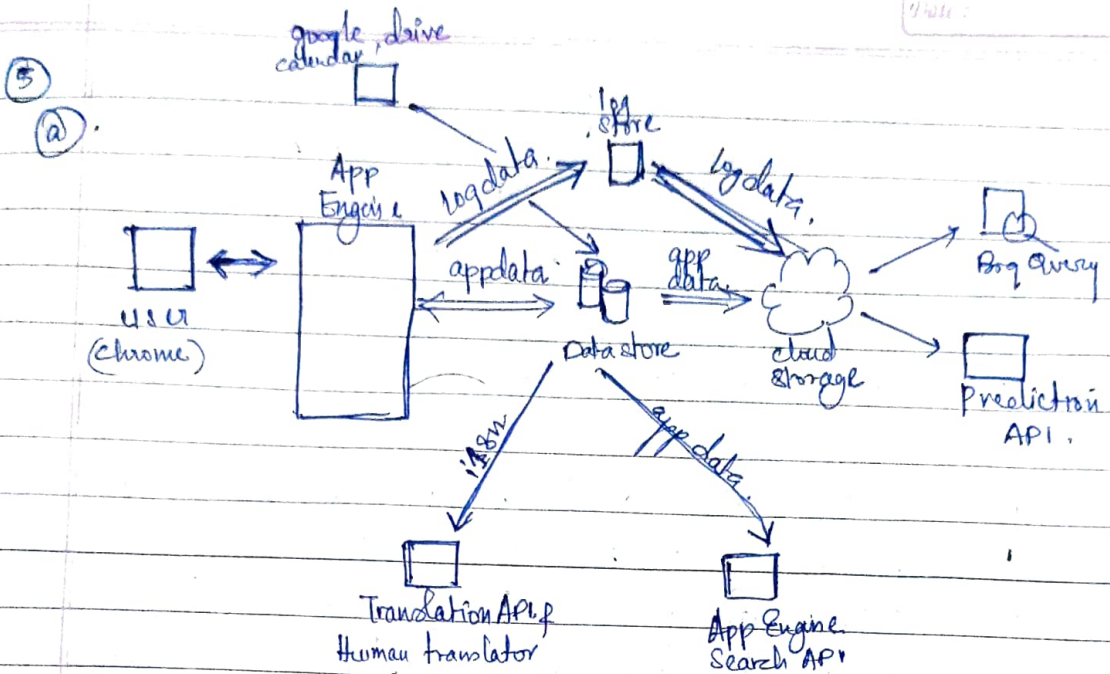 google, drive
calendar
5
a
log
store
App
Engine
log data.
log data.
user
(chrome)
appdata
app
data
Data store
cloud
storage
Big Query
Prediction
API.
i18n
app data.
Translation API &
Human translator
App Engine
Search API